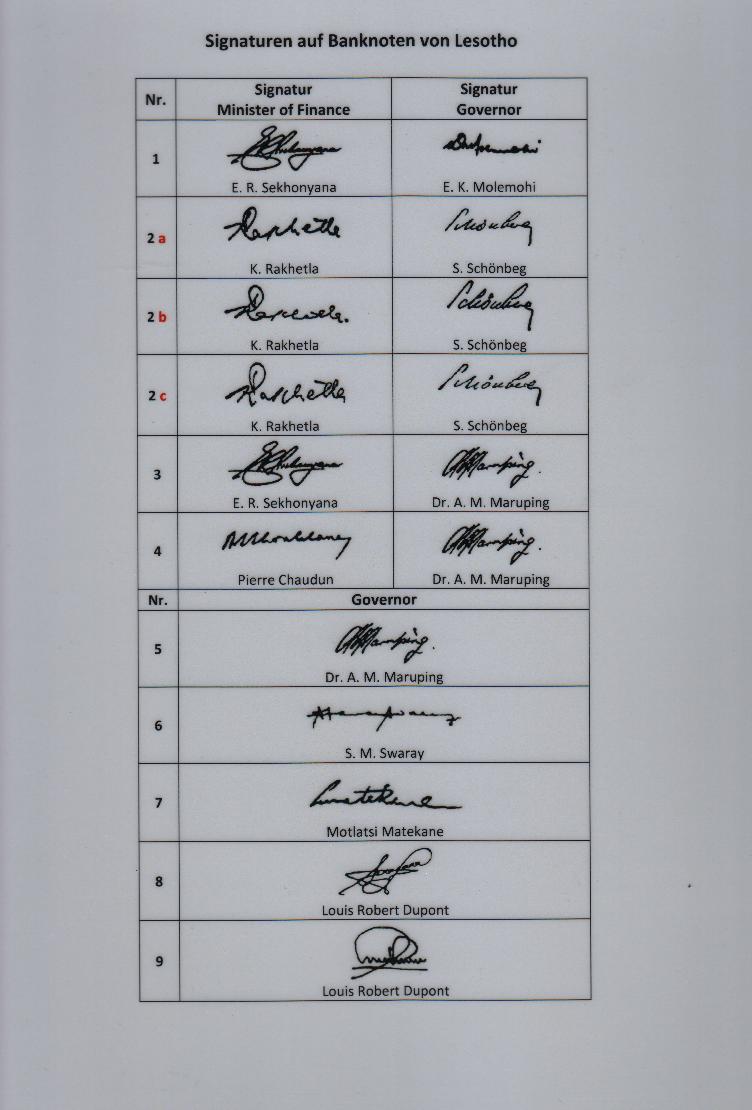 Signaturen auf Banknoten von Lesotho
Nr. Signatur Minister of Finance Signatur Governor
1 E. R. Sekhonyana E. K. Molemohi
2 a K. Rakhetla S. Schönbeg
2 b K. Rakhetla S. Schönbeg
2 c K. Rakhetla S. Schönbeg
3 E. R. Sekhonyana Dr. A. M. Maruping
4 Pierre Chaudun Dr. A. M. Maruping
Nr. Governor
5 Dr. A. M. Maruping
6 S. M. Swaray
7 Motlatsi Matekane
8 Louis Robert Dupont
9 Louis Robert Dupont